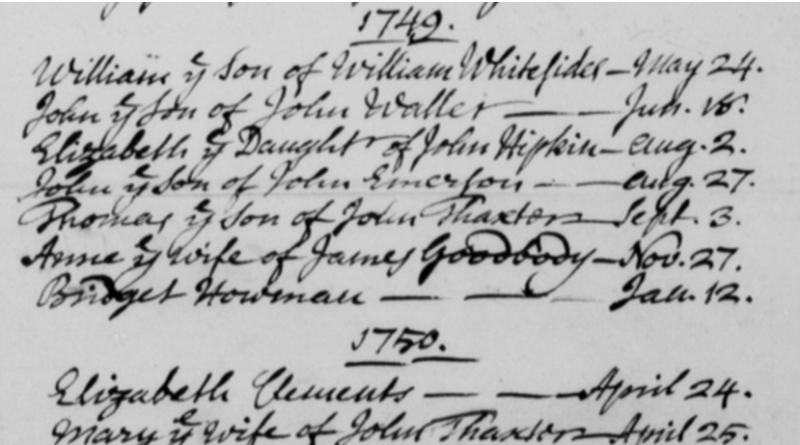 1749.
William yͤ Son of William Whitesides – May 24.
John yͤ Son of John Waller — — Jun. 18.
Elizabeth yͤ Daught of John Hipkin – Aug. 2.
John yͤ Son of John Emerson – — Aug. 27.
Thomas yͤ Son of John Thaxter — Sept. 3.
Anne yͤ wife of James Goodbody – Nov. 27.
Bridget Howman — — — Jan. 12.
1750.
Elizabeth Clements — — — April 24.
Mary yͤ Wife of John Thaxter — April 25.